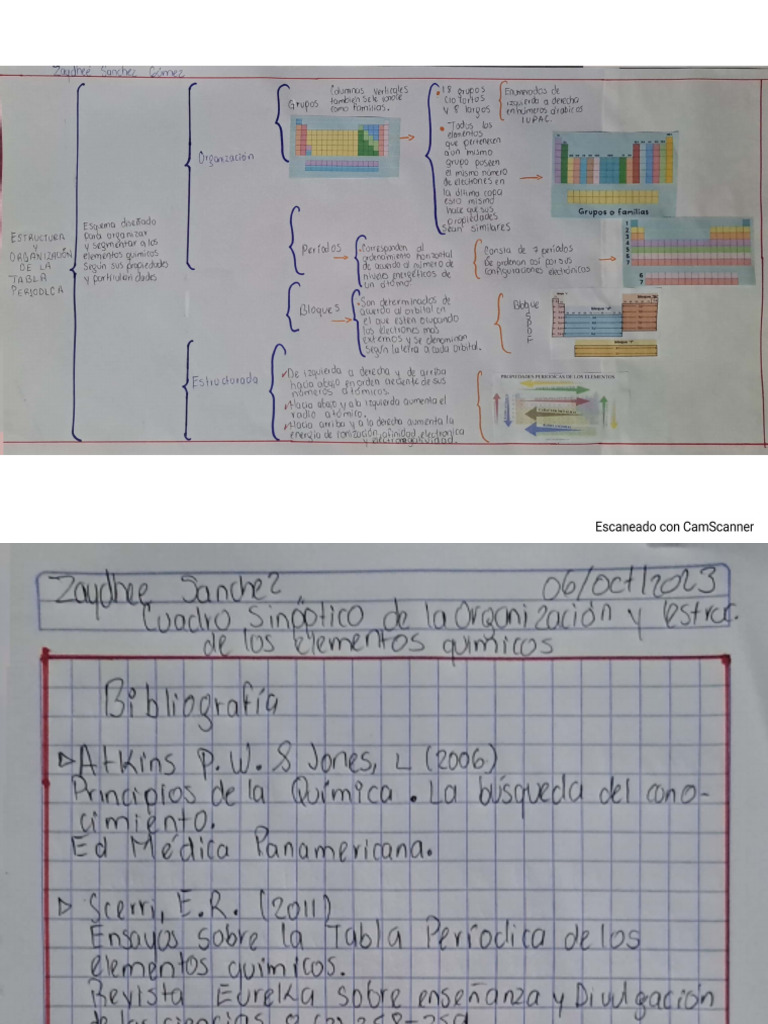 Zaydheé Sanchez Gómez
ESTRUCTURA
Y
ORGANIZACIÓN
DE LA
TABLA
PERIODICA
Esquema diseñado
para organizar
y segmentar a los
elementos químicos
según sus propiedades
y particularidades
Organización
Grupos
Columnas verticales
también se le conoce
como familias.
18 grupos
(10 cortos
y 8 largos
Enumerados de
izquierda a derecha
en números arábicos
IUPAC
Todos los
elementos
que pertenecen
a un mismo
grupo poseen
el mismo número
de electrones en
la última capa
esto mismo
hace que sus
propiedades
sean similares
Grupos o familias
Períodos
Corresponden al
ordenamiento horizontal
de acuerdo al número de
niveles energéticos de
un átomo
Consta de 7 periodos
Se ordenan así por sus
configuraciones electrónicas
1
2
3
4
5
6
7
6
7
Bloques
Son determinados de
acuerdo al orbital en
el que estén ocupando
los electrones más
externos y se denominan
según la letra a cada orbital.
Bloque
S
P
D
F
Estructurada
De izquierda a derecha y de arriba
hacia abajo en orden acdente de sus
números atómicos.
Hacia abajo y a la izquierda aumenta el
radio atómico.
Hacia arriba y a la derecha aumenta la
energía de ionización, afinidad electronica
y electronegatividad.
PROPIEDADES PERIÓDICAS DE LOS ELEMENTOS
Escaneado con CamScanner
Zaydhee Sanchez 06/oct/2023
Cuadro Sinóptico de la Organización y Estruct.
de los elementos químicos
Bibliografía
▷ Atkins P.W. & Jones, L (2006)
Principios de la Química. La búsqueda del cono-
cimiento.
Ed Médica Panamericana.
▷ Scerri, E.R. (2011)
Ensayos sobre la Tabla Períodica de los
elementos químicos.
Revista Eureka sobre enseñanza y Divulgación
de las ciencias